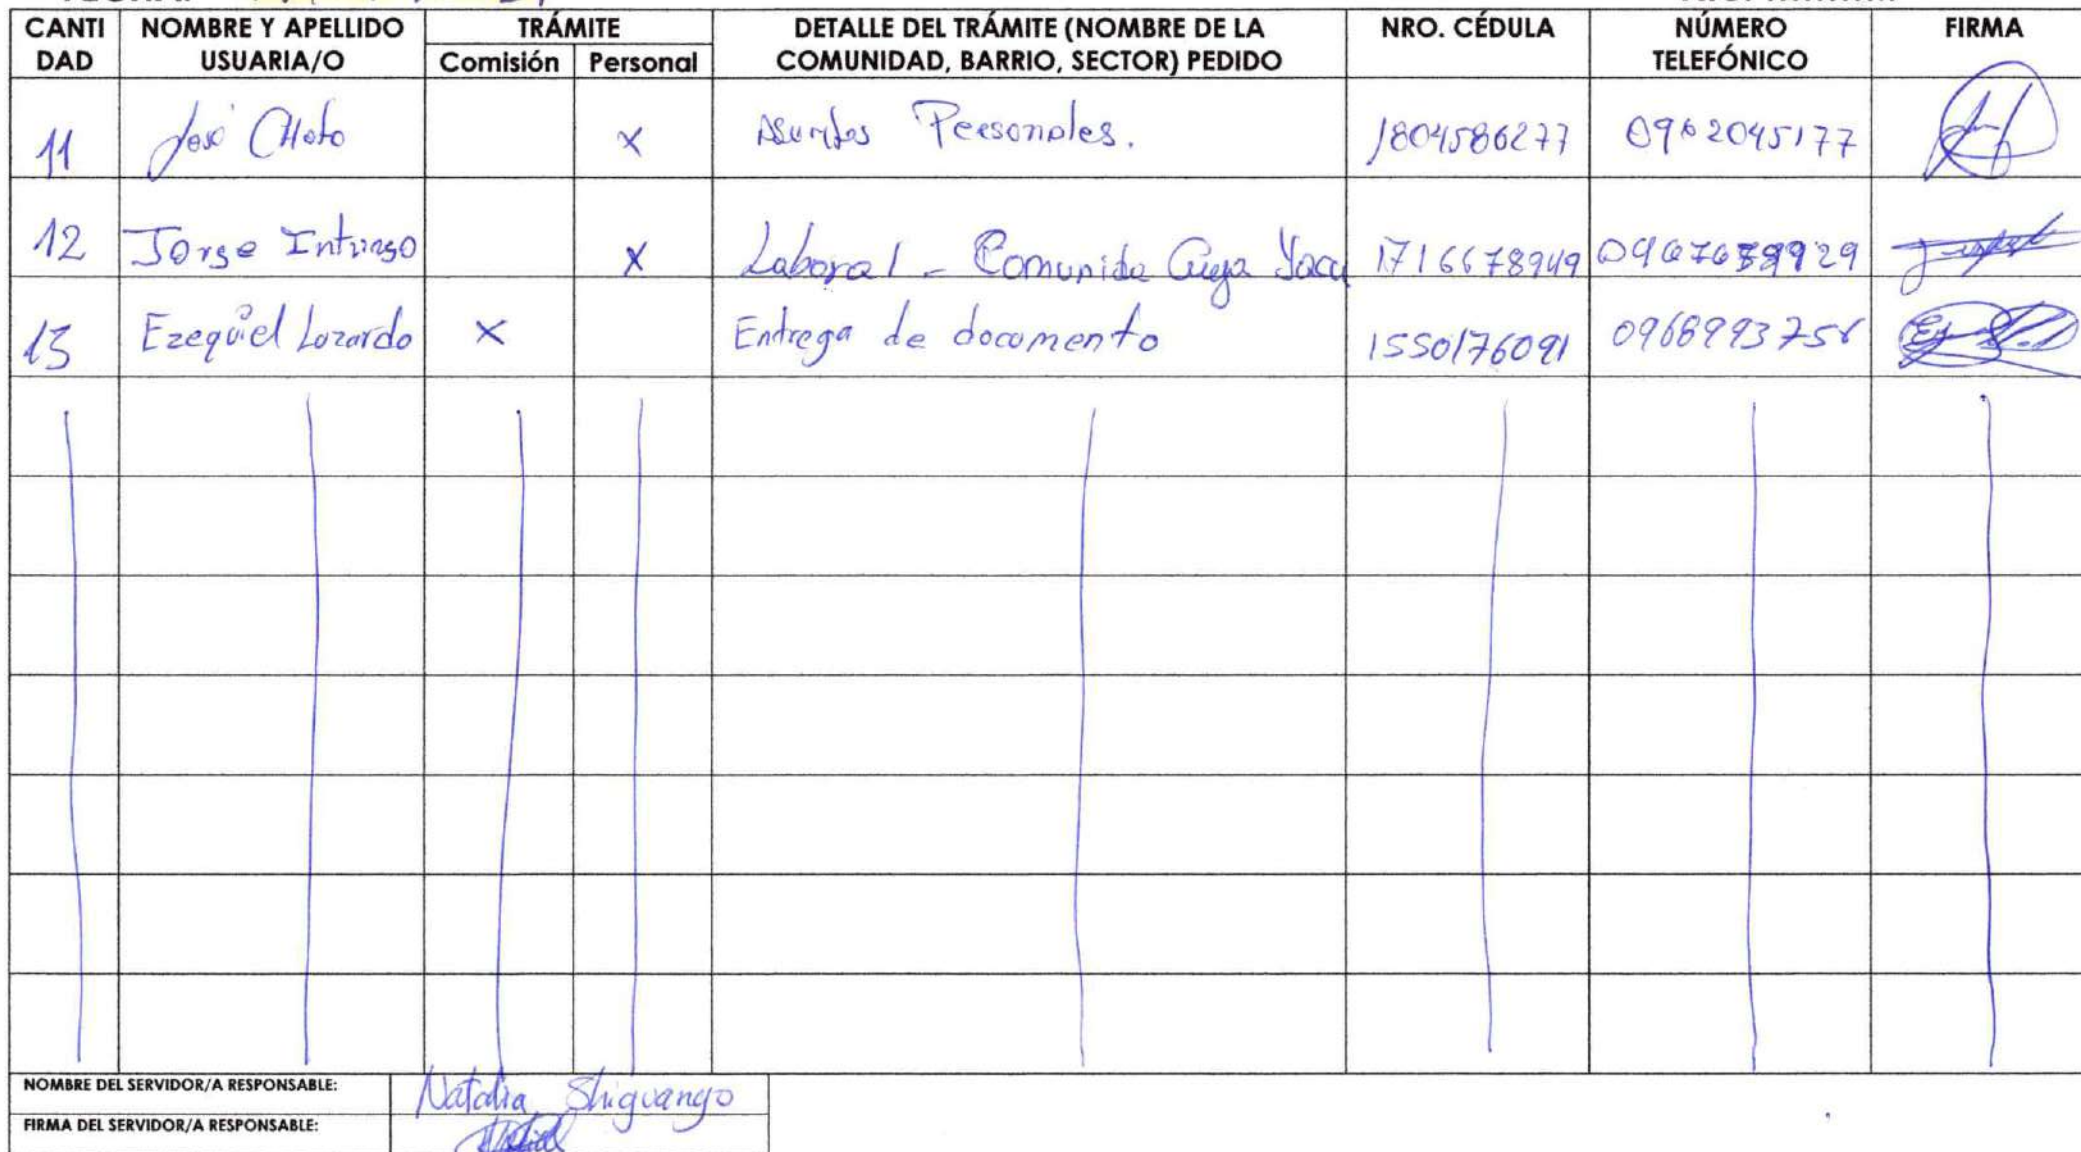 CANTI DAD NOMBRE Y APELLIDO USUARIA/O TRÁMITE Comisión Personal DETALLE DEL TRÁMITE (NOMBRE DE LA COMUNIDAD, BARRIO, SECTOR) PEDIDO NRO. CÉDULA NÚMERO TELEFÓNICO FIRMA
11 José x Asuntos Personales. 1804586277 0962045177
12 Jorge x Laboral - Comunida Yacu 1716678949
13 Ezequiel Lozardo x Entrega de documento 1550176091
NOMBRE DEL SERVIDOR/A RESPONSABLE: Natalia Shiguango
FIRMA DEL SERVIDOR/A RESPONSABLE: